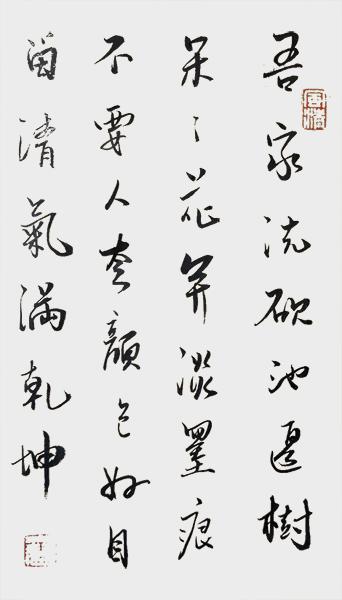 吾家洗硯池邊樹
朵々花开淡墨痕
不要人夸顏色好只
留清氣滿乾坤